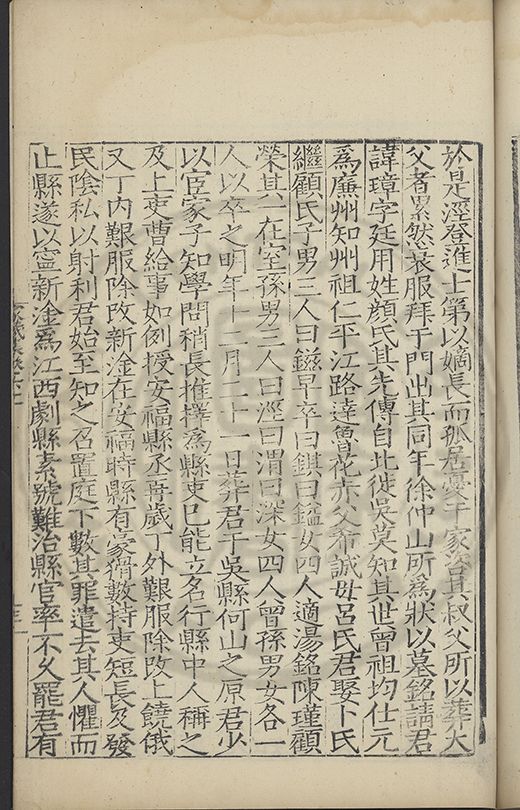 於是涇登進士第以嫡長而孤居憂于家咨其叔父所以葬大
父者累然衰服拜于門出其同年徐仲山所為狀以墓銘請君
諱璋字廷用姓顔氏其先傳自北徙吳莫知其世曾祖均仕元
為廉州知州祖仁平江路達魯花赤父希誠母呂氏君娶卜氏
繼顧氏子男三人曰鎡早卒曰鎮曰鎰女四人適湯銘陳瑾顧
榮其一在室孫男三人曰涇曰渭曰深女四人曾孫男女各一
人以卒之明年十二月二十一日葬君于吳縣何山之原君少
以宦家子知學問稍長推擇為縣吏已能立名行縣中人稱之
及上吏曹給事如例授安福縣丞再歲丁外艱服除改上饒俄
又丁内艱服除改新淦在安福時縣有豪猾數持吏短長及發
民陰私以射利君始至知之召置庭下數其罪遣去其人懼而
止縣遂以寧新淦為江西劇縣素號難治縣官率不久罷君有